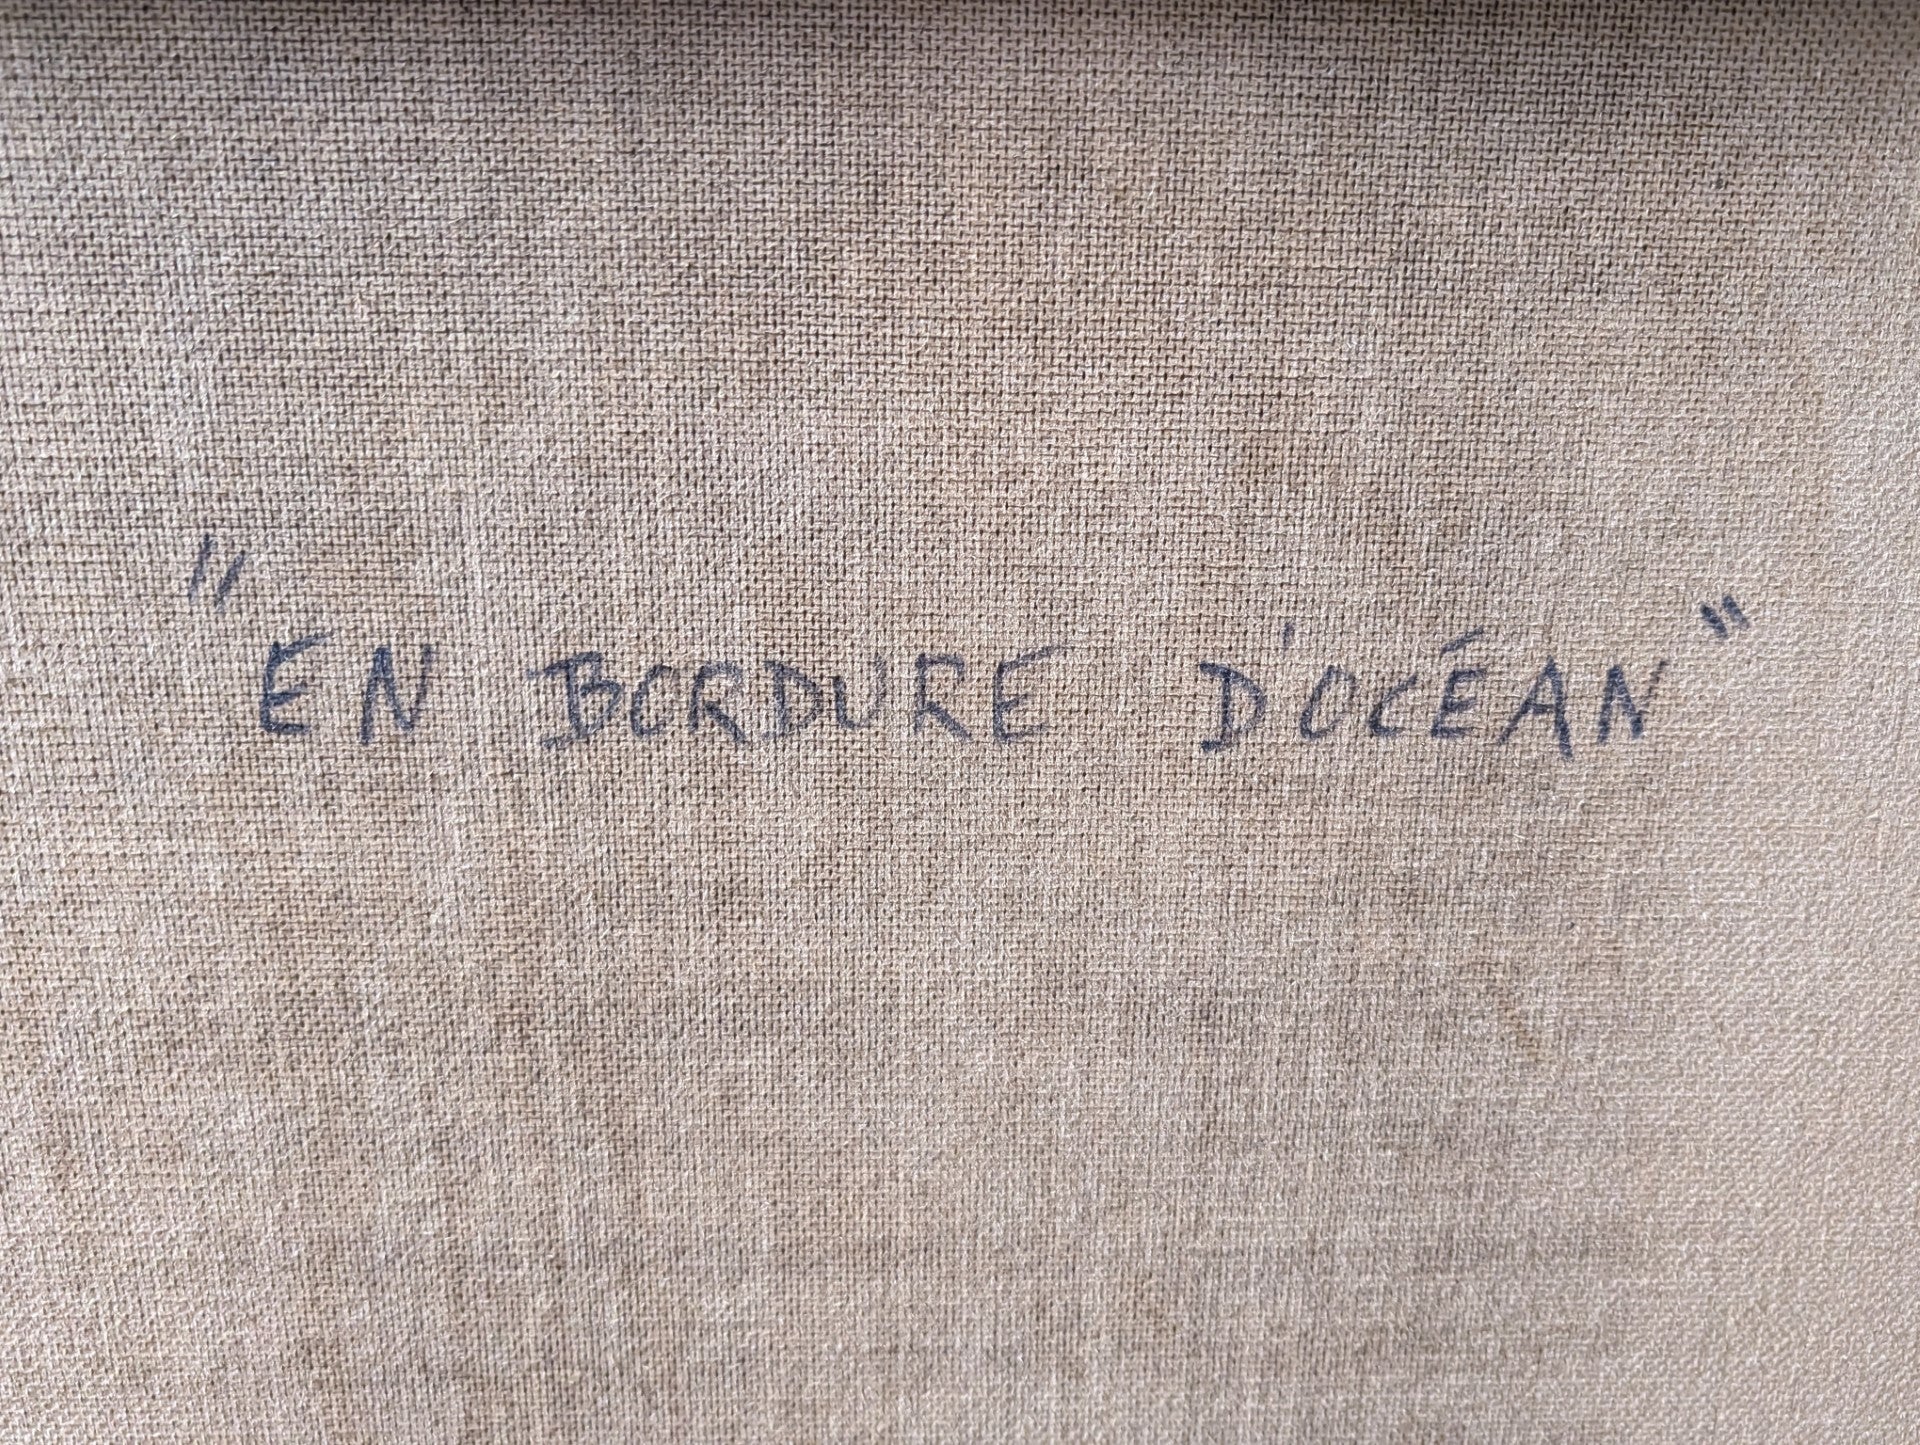 "EN BORDURE D'OCÉAN"